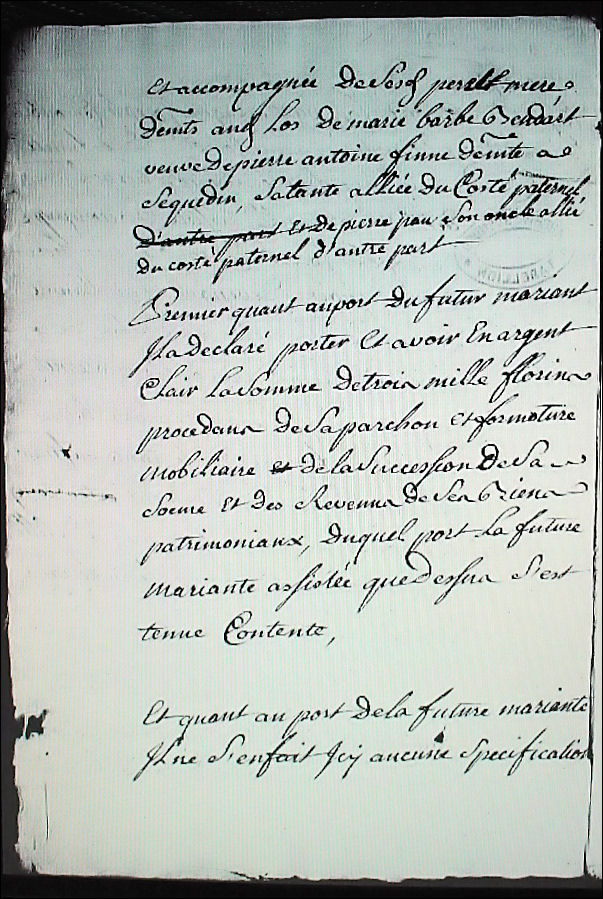 Et accompagnée de Sesd pere et mere
demts aud Los de marie barbe Brendart
veuve de pierre antoine finne demte a
Sequedin, Sa tante alliée du Costé paternel
D'autre part Et de pierre pau Son oncle allié
du costé paternel d'autre part
Premier quant au port du futur mariant
Jl a declaré porter Et avoir En argent
Clair La Somme de trois mille florins
procedans de Sa parchon Et formoture
mobiliaire et de la Succession de Sa
Soeure Et des Revenus de Ses Biens
patrimoniaux, duquel port La future
mariante assistée que dessus S'est
tenue Contente,
Et quant au port de la future mariante
Jl ne S'en fait Jcy aucune Specification